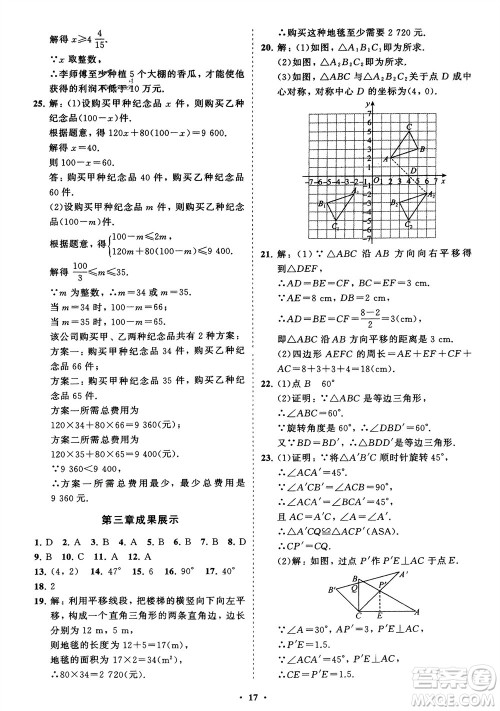 解得 x≥4 4/15.
∵x 取整数,
∴李师傅至少种植 5 个大棚的香瓜,才能使
获得的利润不低于 10 万元.
25. 解:(1)设购买甲种纪念品 x 件,则购买乙种
纪念品(100-x)件.
根据题意,得 120x+80(100-x)=9 600.
解得 x=40.
则 100-x=60.
答:购买甲种纪念品 40 件,购买乙种纪念品
60 件.
(2)设购买甲种纪念品 m 件,则购买乙种纪
念品(100-m)件.
根据题意,得{100-m≤2m,
m≤35.
解得 100/3≤m≤35.
∵m 为整数,∴m=34 或 m=35.
当 m=34 时,100-m=66;
当 m=35 时,100-m=65.
该公司购买甲、乙两种纪念品共 2 种方案:
方案一:购买甲种纪念品 34 件,乙种纪念品
66 件;
方案二:购买甲种纪念品 35 件,乙种纪念品
65 件.
方案一所需总费用为
120×34+80×66=9 360(元);
方案二所需总费用为
120×35+80×65=9 400(元).
∵9 360<9 400,
∴方案一所需总费用最少,最少总费用是
9 360 元.
第三章成果展示
1. D 2. A 3. D 4. C 5. D 6. D 7. C 8. D
9. B 10. B 11. B 12. D
13. (4,2) 14. 47° 15. 6 16. 40° 17. 9
18. 2
19. 解:利用平移线段,把楼梯的横竖向下向左平
移,构成一个直角三角形的两条直角边,边长
分别为 12 m,5 m,
则地毯的长度为 12+5=17(m),
地毯的面积为 17×2=34(m²).
∴80×34=2 720(元).
∴购买这种地毯至少需要 2 720 元.
20. 解:(1)如图,△A₁B₁C₁ 即为所求.
(2)如图,△A₂B₂C₂ 即为所求.
(3)如图,△ABC 与△A₂B₂C₂ 关于点 D 成中
心对称,对称中心 D 的坐标为(4,0).
21. 解:(1)∵△ABC 沿 AB 方向向右平移得
到△DEF,
∴AD=BE=CF,BC=EF=3 cm.
∵AE=8 cm,DB=2 cm,
∴AD=BE=CF=(8-2)/2=3(cm),
即△ABC 向右平移的距离是 3 cm.
(2)四边形 AEFC 的周长=AE+EF+CF+
AC=8+3+3+4=18(cm).
22. (1)点 B 60°
(2)证明:∵△ABC 是等边三角形,
∴∠ABC=60°.
∵旋转角度是 60°,∴∠DBD′=60°.
又∵BD=BD′,
∴△BDD′是等边三角形.
23. (1)证明:∵△ACB 旋转后得△A′CB′,
∴∠ACA′=45°.
∵∠BCA′=45°,∴∠BCA′=∠ACA′.
又∵∠A=∠A′,
且 CA=CA′,
∴△A′CQ≌△ACP′(ASA).
∴CP′=CQ.
(2)解:过点 P′作 P′E⊥AC 于点 E.
B′ A′ B P′ C E A
∵∠A=30°,AP′=2,∴P′E=1.
∵∠ACP′=45°,
∴CE=P′E=1.
17